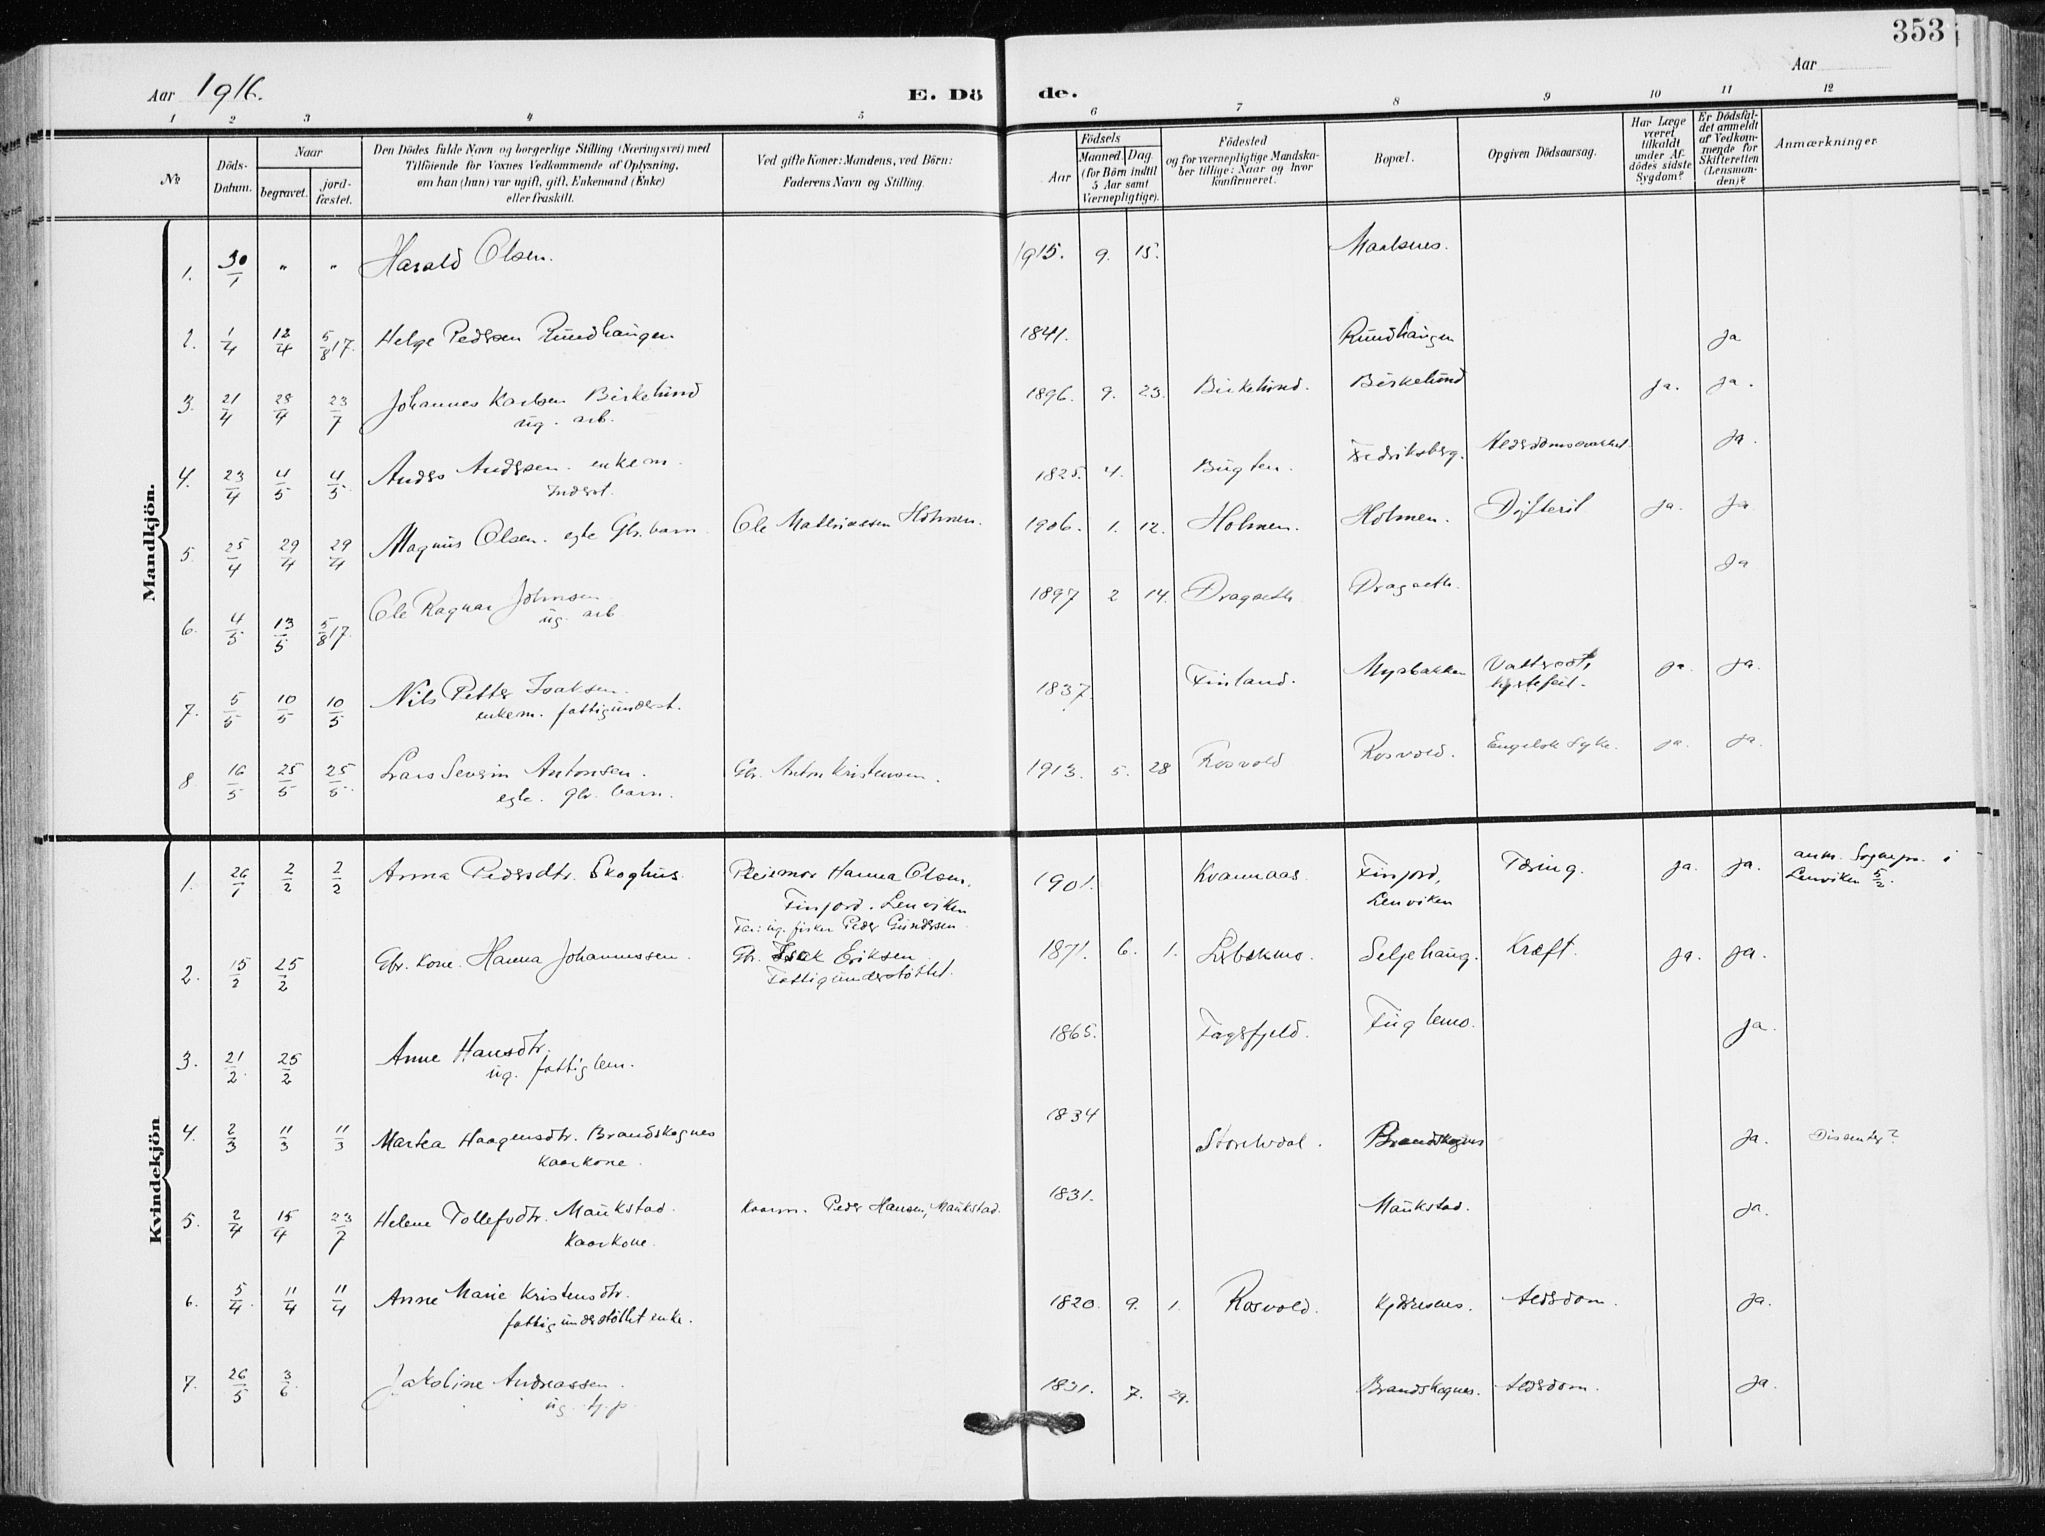 353
Aar 1916. E. Dö de. Aar
1 2 3 4 5 6 7 8 9 10 11 12
№
Döds-Datum.
Naar
begravet.
jord-fæstet.
Den Dödes fulde Navn og borgerlige Stilling (Næringsvei) med
Tilföiende for Voxnes Vedkommende af Oplysning,
om han (hun) var ugift, gift, Enkemand (Enke)
eller fraskilt.
Ved gifte Koner: Mandens, ved Börn:
Faderens Navn og Stilling.
Födsels
Aar
Maaned. Dag.
(for Börn indtil
5 Aar samt
Værnepligtige).
Födested
og for værnepligtige Mandska-
ber tillige: Naar og hvor
konfirmeret.
Bopæl.
Opgiven Dödsaarsag.
Har Læge
været
tilkaldt
under Af-
dödes sidste
Sygdom?
Er Dödsfal-
det anmeldt
af Vedkom-
mende for
Skifteretten
(Lensman-
den)?
Anmærkninger.
Mandkjön.
1. 30/1 " " Harald Olsen. 1915. 9. 15. Maalsnes.
2. 1/4 12/4 5/8 17. Helge Pedersen Rundhaugen 1841. Rundhaugen ja
3. 21/4 28/4 23/7 Johannes Karlsen Birkelund 1896. 9. 23. Birkelund. Birkelund ja. ja.
ug. arb.
4. 23/4 4/5 4/5 Anders Andersen. enkem. 1825. 4. Bugten. Fredriksberg. Alderdomssvakhet ja.
Inderst.
5 25/4 29/4 29/4 Magnus Olsen. egte Gbr. barn. Ole Mathiassen Holmen. 1906. 1. 12. Holmen. Holmen. Difterit ja. ja
6. 4/5 13/5 5/8 17. Ole Ragnar Johnsen 1897 2 14. Dragseth Dragseth. ja
ug. arb
7. 5/5 10/5 10/5 Nils Petter Isaksen. 1837. Finland. Myrbakken Vattersot, ja. ja.
enkem. fattigunderst. hjertefeil.
8. 16/5 25/5 25/5. Lars Severin Antonsen. Gbr. Anton Kristensen. 1913. 5. 28 Rosvold Rosvold. Engelsk Syke. ja. ja.
egte. gbr. barn.
Kvindekjön
1. 26/1 2/2 2/2 Anna Pedersdtr. Skoghus. Pleiemor Hanna Olsen, 1901. Kvannaas. Finfjord, Tæring. ja. ja. anm. Sognepr. i
Finfjord. Lenviken Lenviken Lenviken 5/2.
Far: ug. fisker Peder Gundersen.
2. 15/2 25/2 Gbr. Kone. Hanna Johannessen. Gbr. Isak Eriksen 1871. 6. 1. Seljehaug. Kræft. ja. ja.
Fattigunderstöttet.
3. 21/2. 25/2 Anne Hansdtr. 1865. Fagerfjeld. Fuglemo. ja.
ug. fattiglem.
4. 2/3 11/3 11/3 Marta Haagensdtr. Brandskognes 1834 Brandskognes ja. Dissenter?
Kaarkone.
5. 2/4 15/4 23/7 Helene Tollefsdtr. Maukstad. Kaarm. Peder Hansen, Maukstad. 1831. Maukstad. ja.
Kaarkone.
6. 5/4. 11/4 11/4 Anne Marie Kristensdtr. 1820. 9. 1. Rosvold. Alderdom. ja.
fattigunderstöttet enke.
7. 26/5 3/6. Jakoline Andreassen. 1831. 7. 29. Brandskognes. Alderdom. ja.
ug. tj. p.